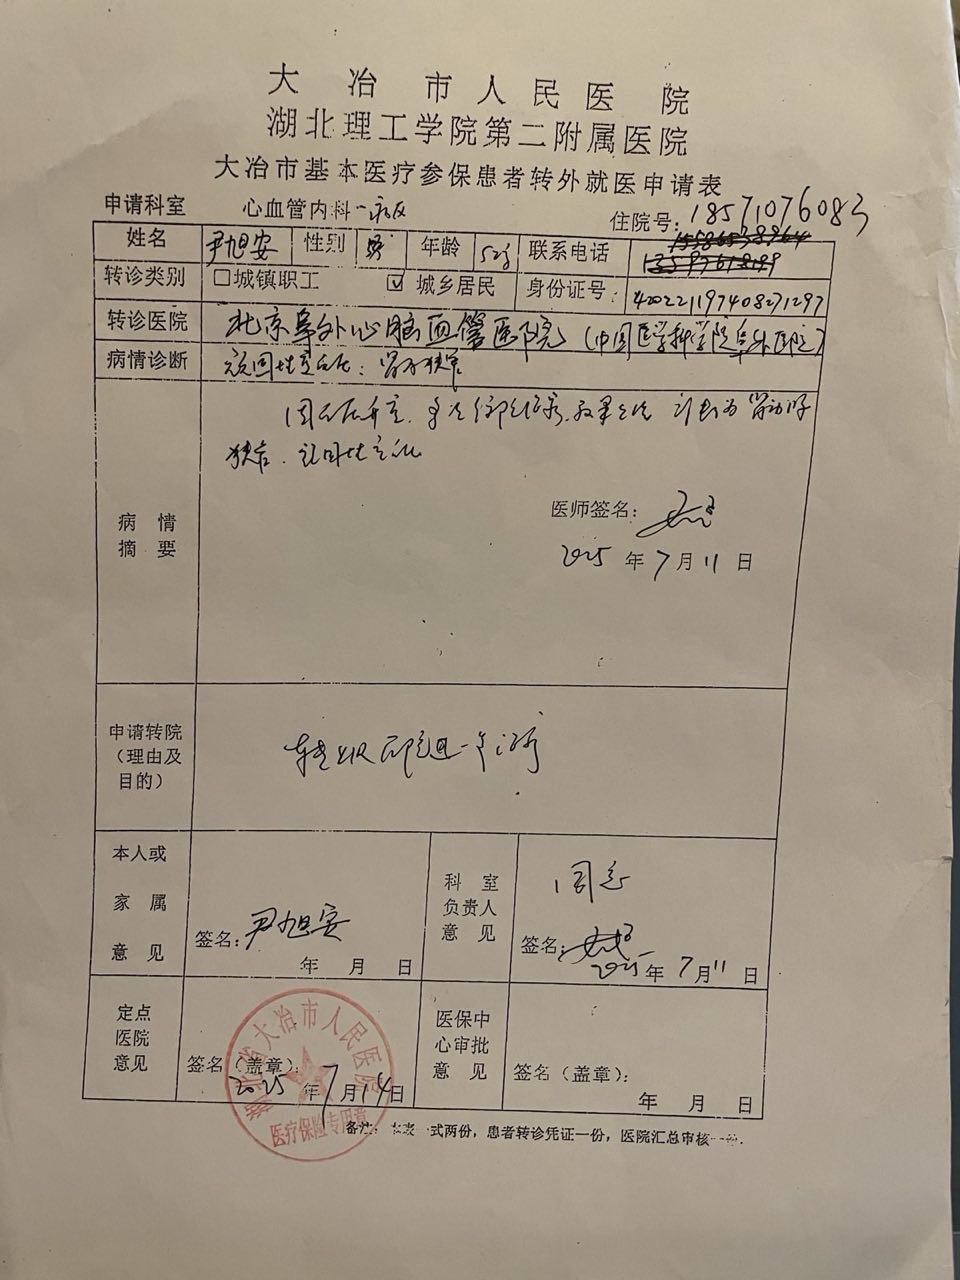 大冶市人民医院
湖北理工学院第二附属医院
大冶市基本医疗参保患者转外就医申请表
申请科室 心血管内科一病区 住院号: 18571076083
姓名 尹旭安 性别 男 年龄 52岁 联系电话
转诊类别 □城镇职工 ☑城乡居民 身份证号: 420221197408271297
转诊医院 北京阜外心脑血管医院(中国医学科学院阜外医院)
病情诊断 顽固性高血压: 肾A狭窄
狭窄.
病情摘要
医师签名:
2025年7月11日
申请转院(理由及目的) 转上级医院进一步治疗
本人或家属意见 签名: 尹旭安
年 月 日
科室负责人意见 同意
签名:
2025年7月11日
定点医院意见 签名(盖章):
2025年7月14日
湖北省大冶市人民医院
医疗保险专用章
医保中心审批意见 签名(盖章):
年 月 日
备注: 本表一式两份,患者转诊凭证一份,医院汇总审核一份.